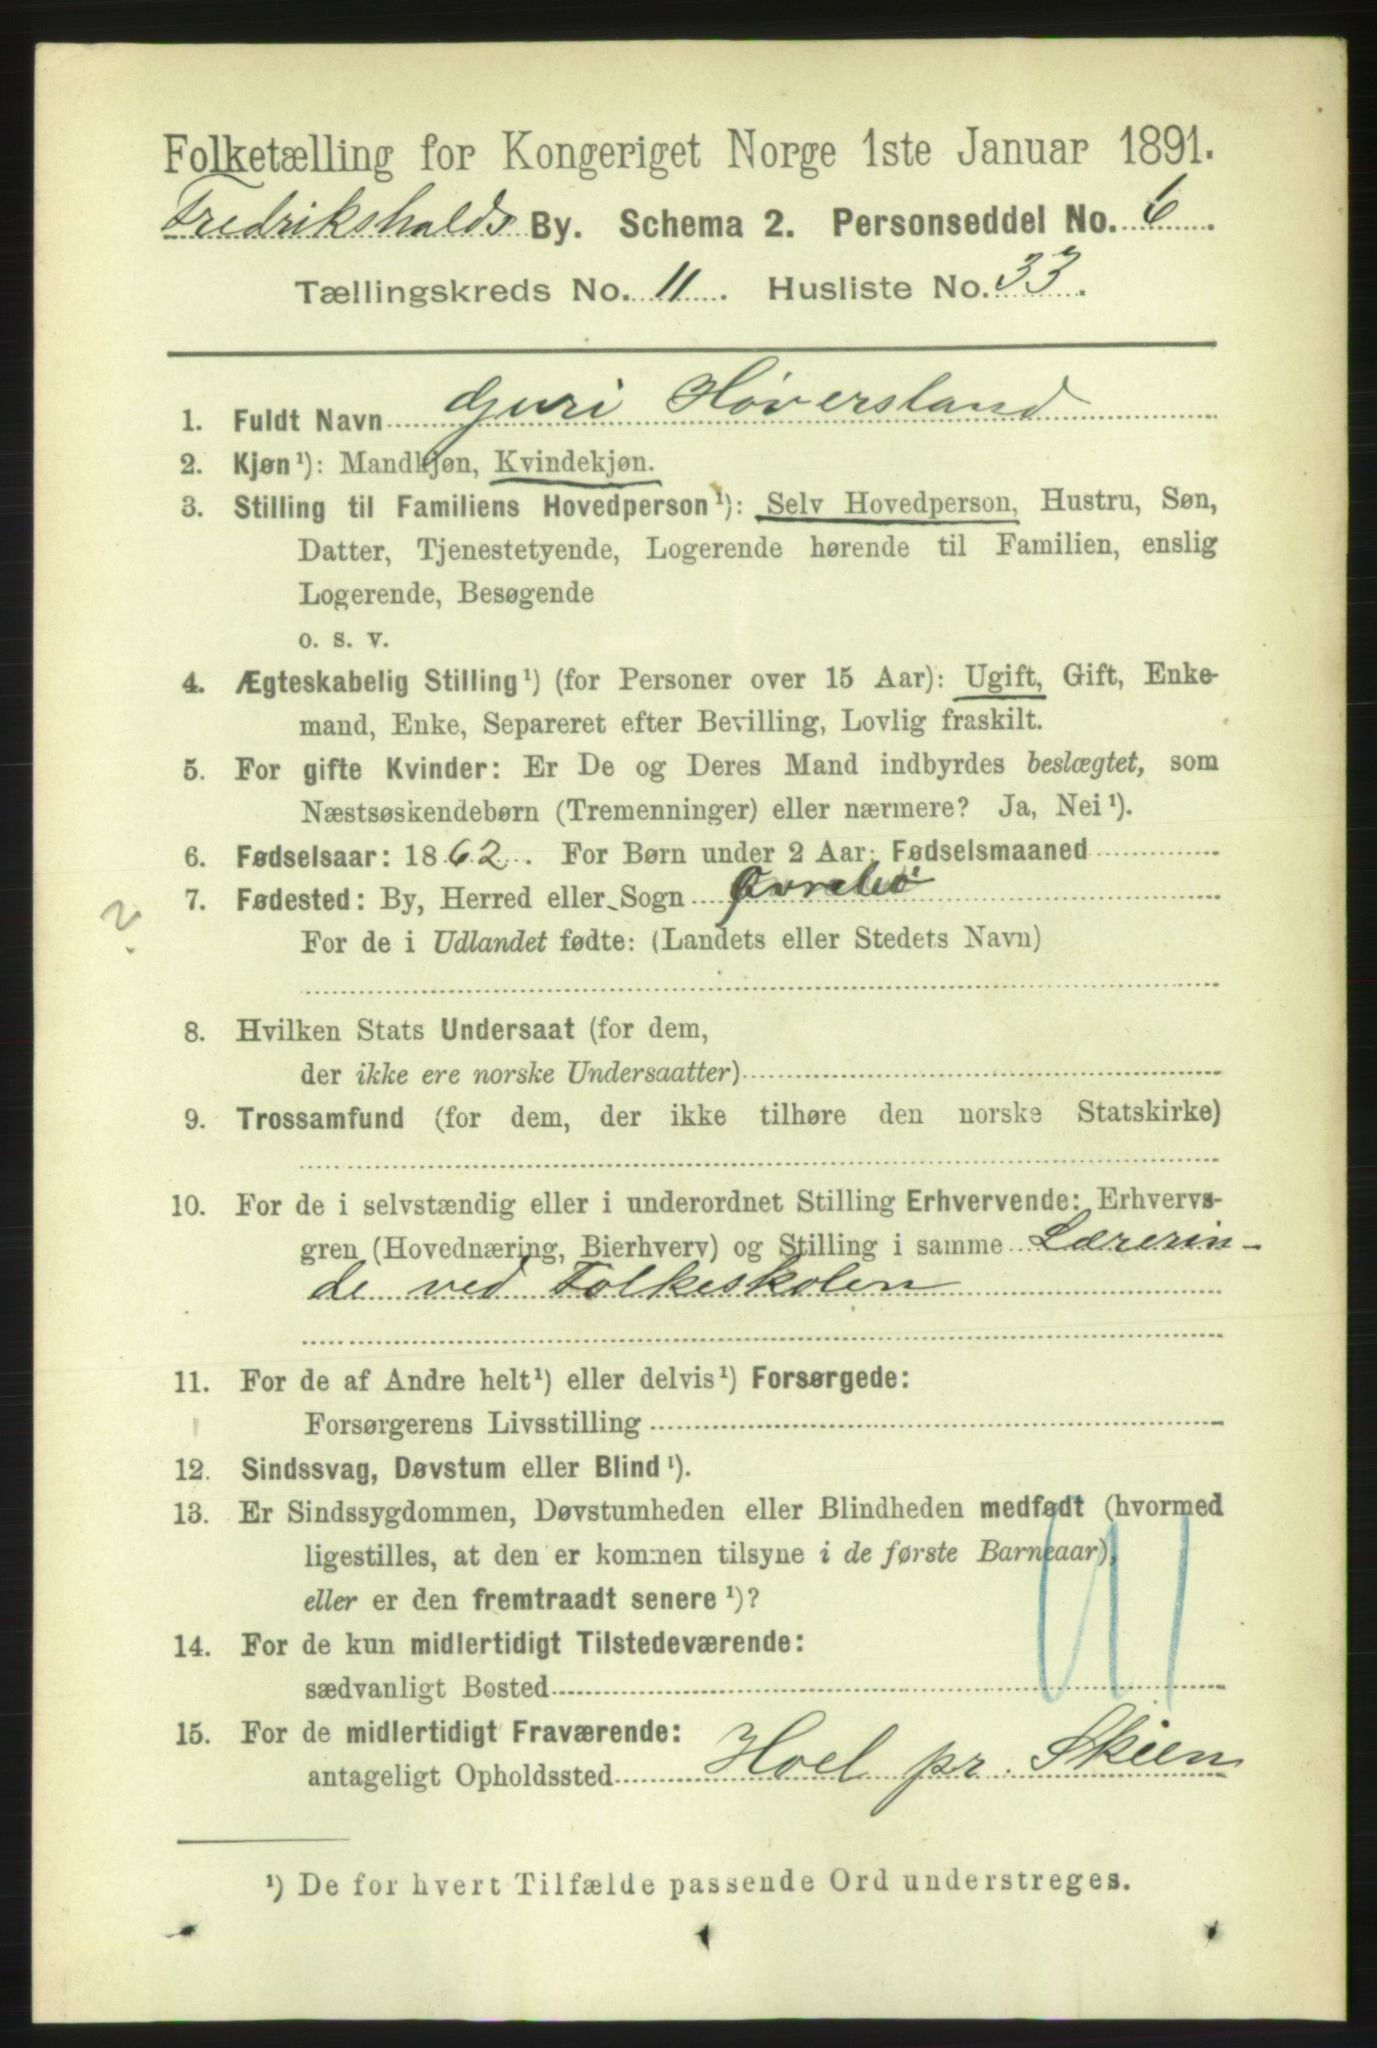 Folketælling for Kongeriget Norge 1ste Januar 1891.
Fredrikshalds By. Schema 2. Personseddel No. 6.
Tællingskreds No. 11. Husliste No. 33.
1. Fuldt Navn Guri Høversland
2. Kjøn¹): Mandkjøn, Kvindekjøn.
3. Stilling til Familiens Hovedperson¹): Selv Hovedperson, Hustru, Søn,
Datter, Tjenestetyende, Logerende hørende til Familien, enslig
Logerende, Besøgende
o. s. v.
4. Ægteskabelig Stilling¹) (for Personer over 15 Aar): Ugift, Gift, Enke-
mand, Enke, Separeret efter Bevilling, Lovlig fraskilt.
5. For gifte Kvinder: Er De og Deres Mand indbyrdes beslægtet, som
Næstsøskendebørn (Tremenninger) eller nærmere? Ja, Nei¹).
6. Fødselsaar: 1862. For Børn under 2 Aar: Fødselsmaaned
7. Fødested: By, Herred eller Sogn Øvrebø
?
For de i Udlandet fødte: (Landets eller Stedets Navn)
8. Hvilken Stats Undersaat (for dem,
der ikke ere norske Undersaatter)
9. Trossamfund (for dem, der ikke tilhøre den norske Statskirke)
10. For de i selvstændig eller i underordnet Stilling Erhvervende: Erhvervs-
gren (Hovednæring, Bierhverv) og Stilling i samme Lærerin-
de ved Folkeskolen
11. For de af Andre helt¹) eller delvis¹) Forsørgede:
Forsørgerens Livsstilling
12. Sindssvag, Døvstum eller Blind¹).
13. Er Sindssygdommen, Døvstumheden eller Blindheden medfødt (hvormed
ligestilles, at den er kommen tilsyne i de første Barneaar),
eller er den fremtraadt senere¹)?
14. For de kun midlertidigt Tilstedeværende:
sædvanligt Bosted
15. For de midlertidigt Fraværende:
antageligt Opholdssted Hoel pr. Skien
¹) De for hvert Tilfælde passende Ord understreges.